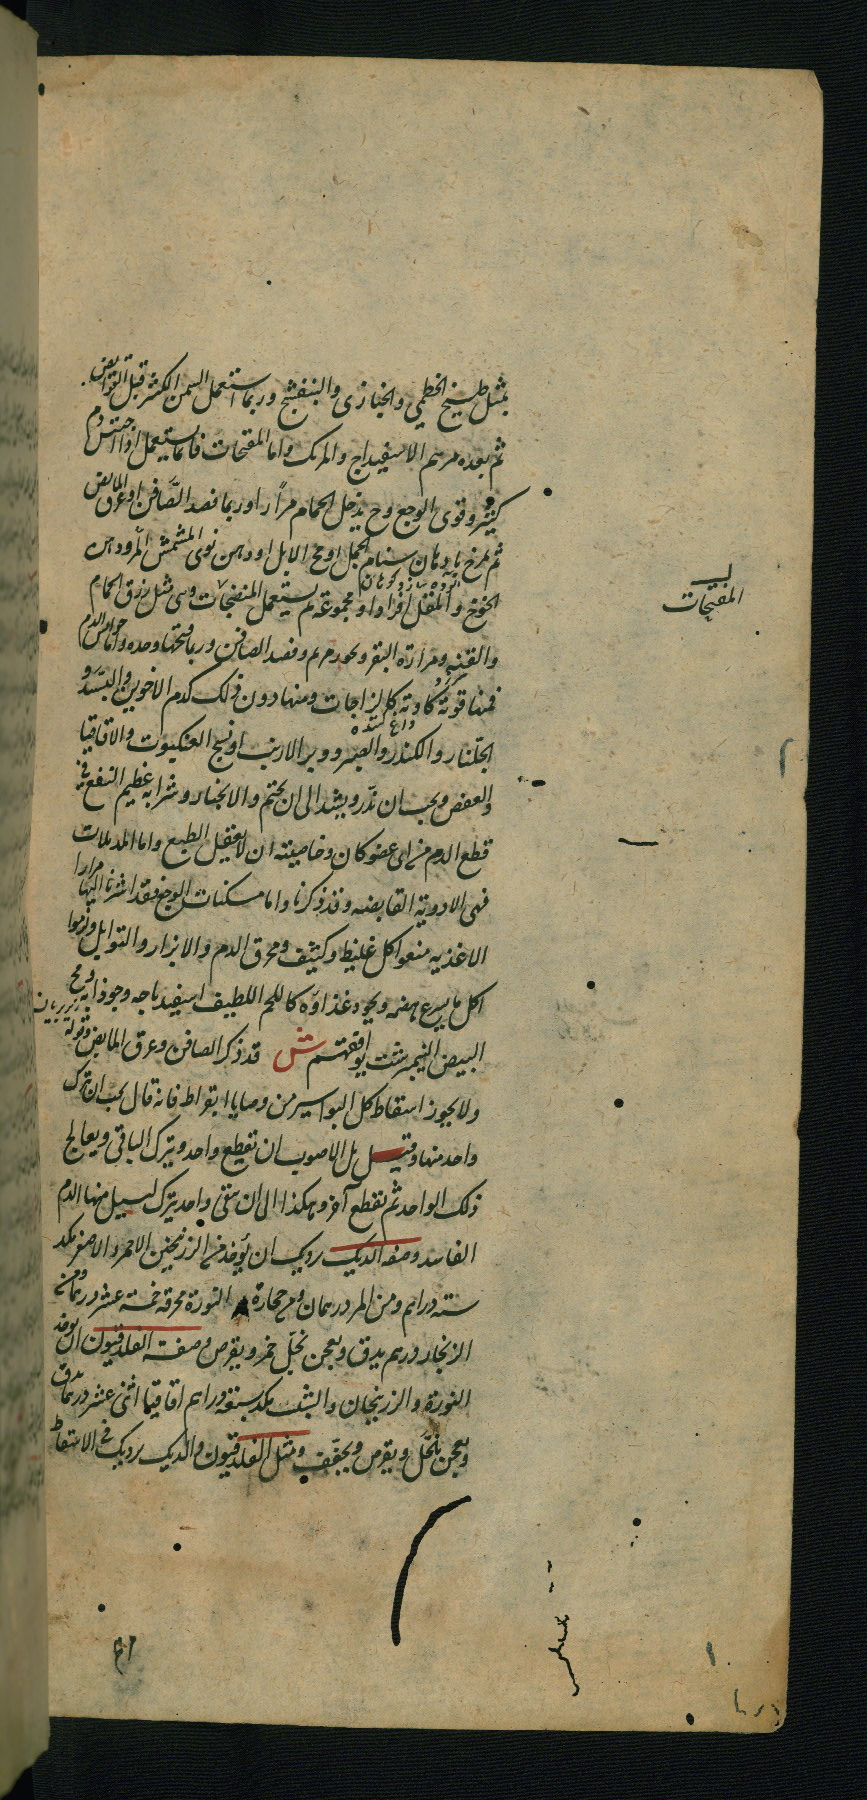 بمثل طبيخ الخطمي والخبازى والبنفشج وربما استعمل السمن الكثير قبل القوابض
ثم بعده مرهم الاسفيداج والمرتك واما المفتحات فانما يستعمل اذا احتبس دم
كثير وقوى الوجع وح يدخل الحمام مرارا وربما فصد الصافن او عرق المابض
ثم يمرخ بادهان سنام الجمل او مخ الابل او دهن نوى المشمش المر ودهن
الخوخ والمقل افرادا ومجموعة ثم يستعمل المنضجات وهى مثل زرق الحمام
والقنه ومرارة البقر وبخور مريم وفصد الصافن وربما فتحها وحده واما حوابس الدم
فمنها قوية كاوية كالزاجات ومنها دون ذلك كدم الاخوين والبسد و
داغ كننده
الجلنار والكندر والصبر ووبر الارنب او نسج العنكبوت والاقاقيا
والعفص ويجب ان تذر ويشد الى ان يختم والانجبار وشرابه عظيم النفع فى
قطع الدم من اى عضو كان وخاصيته ان لا يعقل الطبع واما المدملات
فهى الادوية القابضه وقد ذكرنا واما مسكنات الوجع فقد اشرنا اليها مرارا
الاغذيه منعوا كل غليظ وكثيف ومحرق الدم والابزار والتوابل والزموا
اكل ما يسرع هضمه ويجود غذاؤه كاللحم اللطيف اسفيدباجه وجوذابه ومح
البيض النيمبرشت يوافقهم ش قد ذكر الصافن وعرق المابض وقوله
ولا يجوز اسقاط كل البواسير من وصايا ابقراط فانه قال يجب ان يترك
واحد منها وقيل بل الاصوب ان تقطع واحد ويترك الباقى ويعالج
ذلك الواحد ثم تقطع آخر وهكذا الى ان يبقى واحد يترك ليسيل منها الدم
الفاسد وصفه الديك برديك ان يؤخذ من الزرنيخين الاحمر والاصفر مكد
سته دراهم ومن المر درهمان ومن حجارة النورة محرقة خمسة عشر درهما ومن
الزنجار درهم يدق ويعجن بخل خمر ويقرص وصفة الفلدفيون ان يوخذ
النورة والزرنيخان والشب مكد سبعة دراهم اقاقيا اثنى عشر درهما يدق
ويعجن بالخل ويقرص ويجفف ومثل الفلدفيون والديك برديك فى الاسقاط
المفتحات